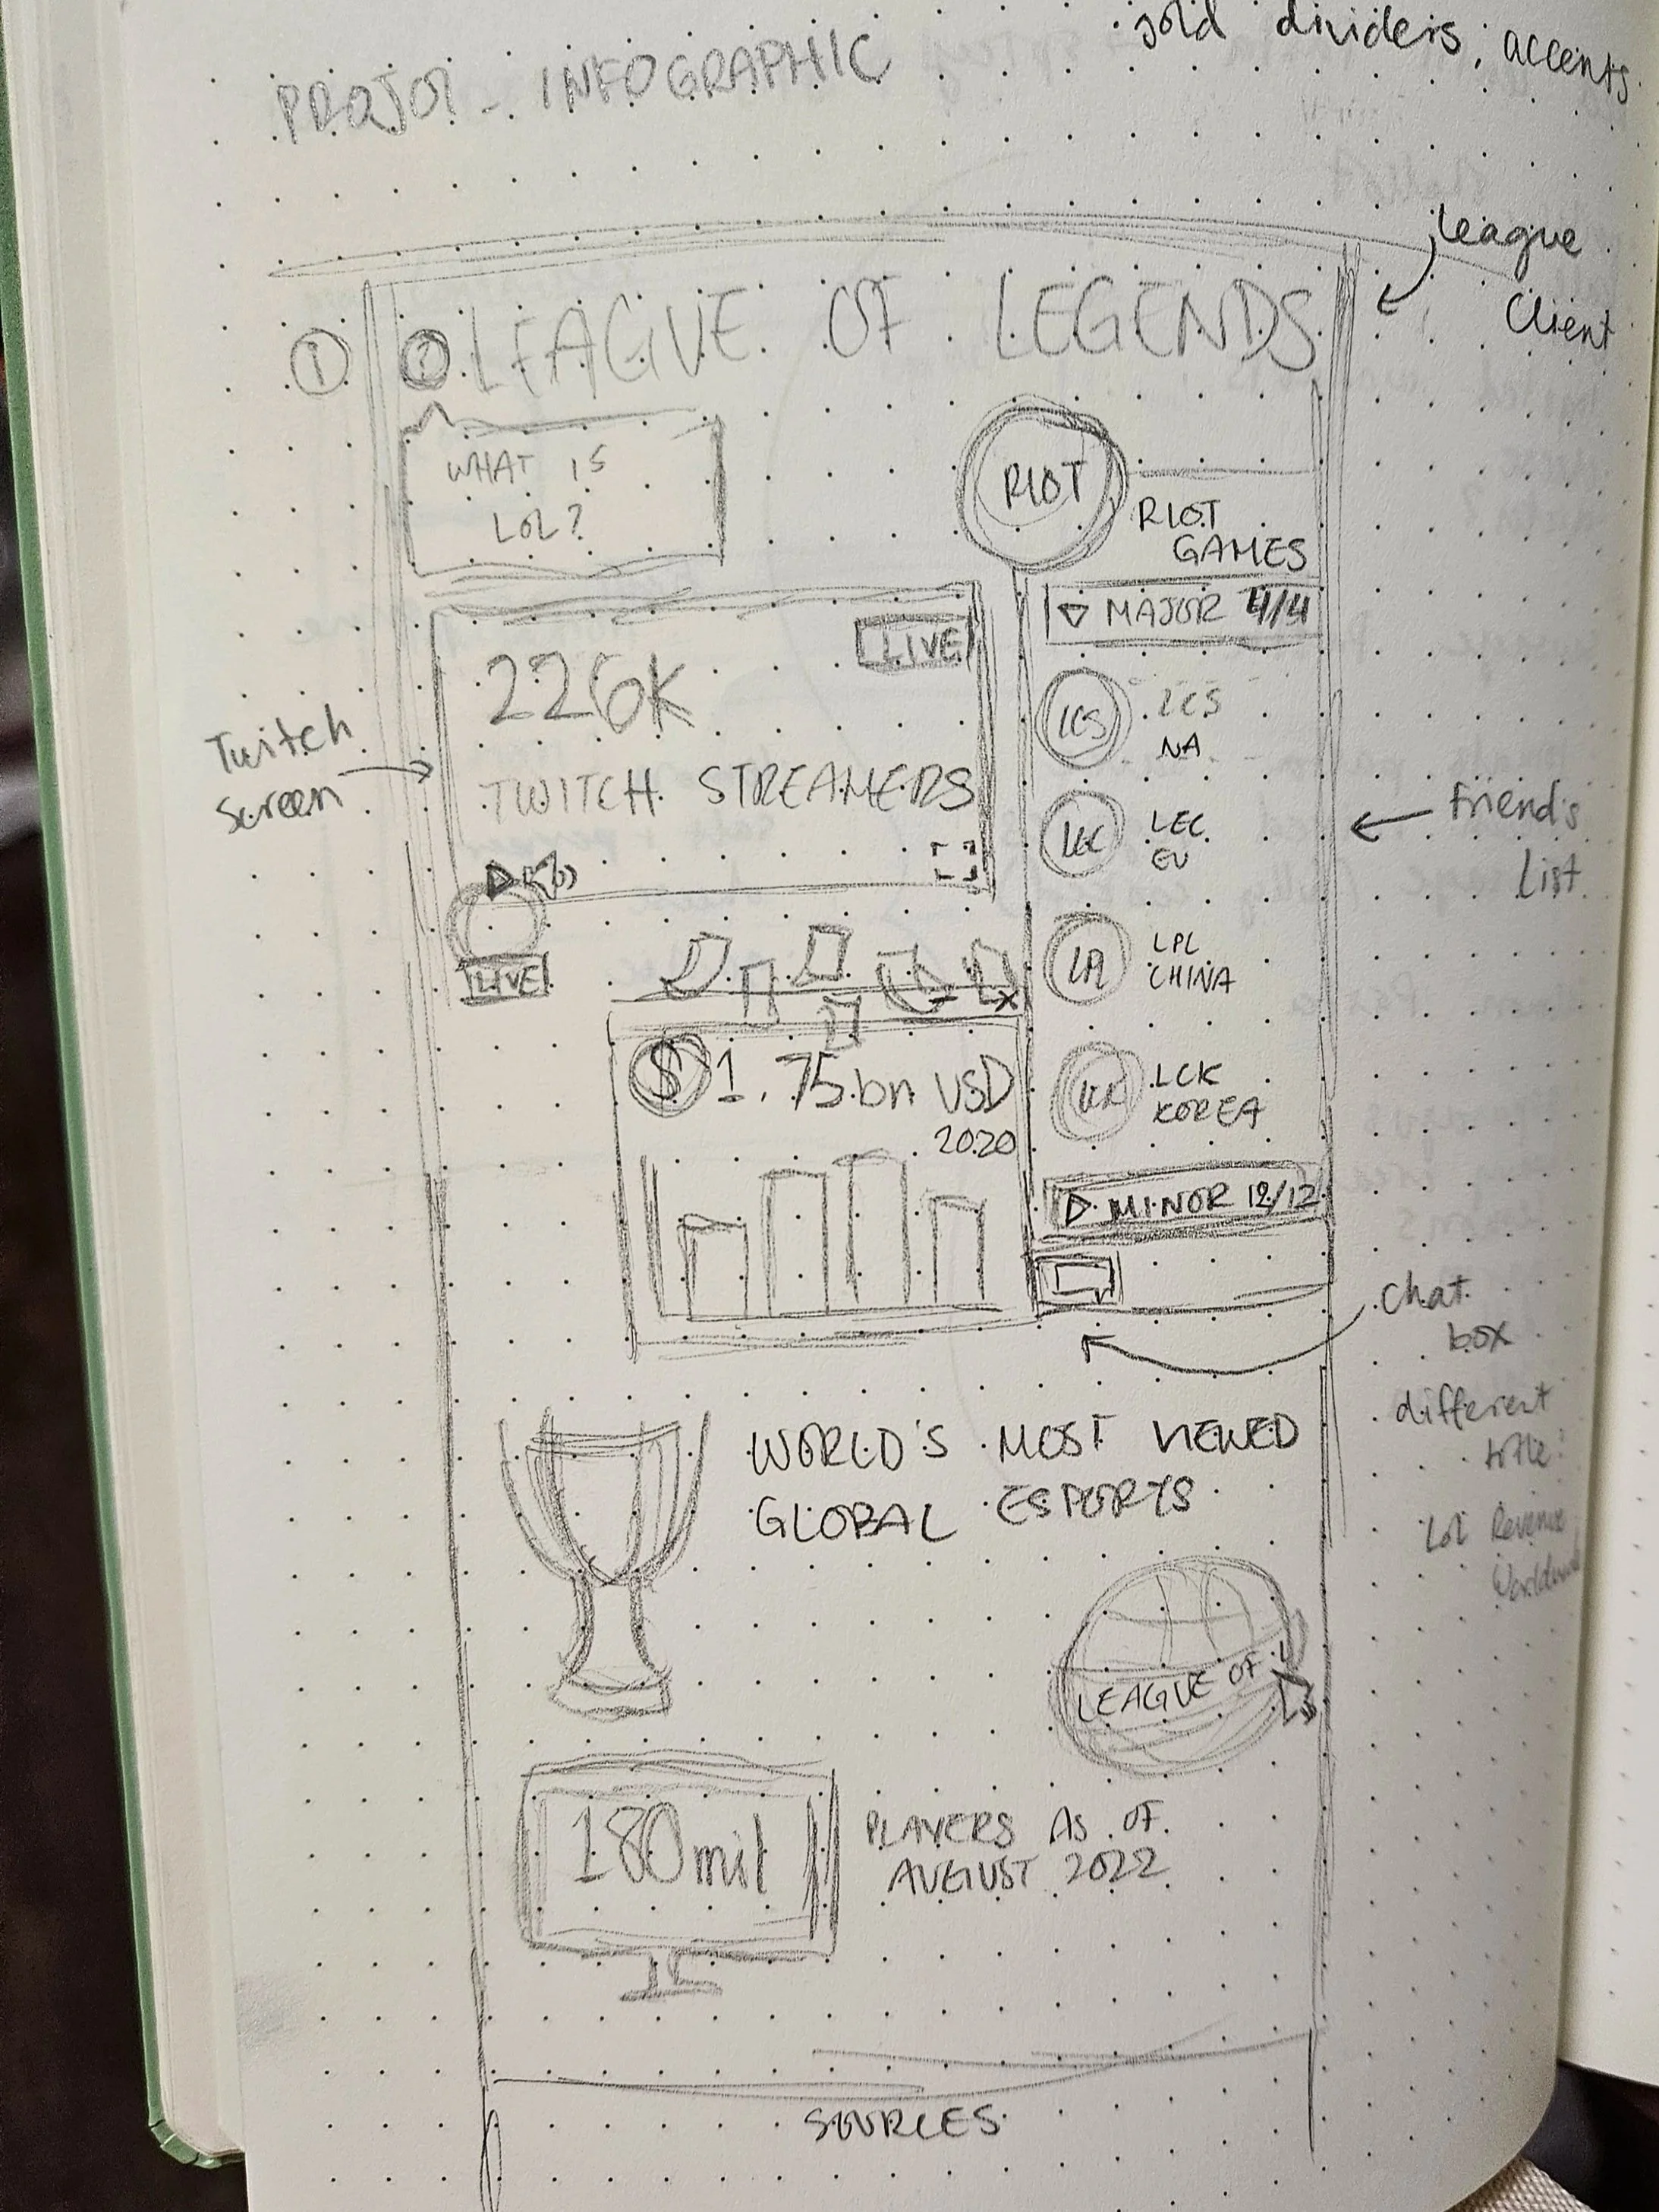 gold dividers, accents
PROJ01 - INFOGRAPHIC
League
Client
①
? LEAGUE OF LEGENDS
WHAT IS
LOL?
RIOT
RIOT
GAMES
LIVE
226K
TWITCH STREAMERS
Twitch
Screen
LIVE
▽ MAJOR 4/4
LCS LCS
NA
LEC LEC
EU
LPL LPL
CHINA
LCK LCK
KOREA
Friend's
List
▷ MINOR 12/12
- X
$1.75 bn USD
2020
Chat
box
different
title?
LoL Revenue
Worldwide
WORLD'S MOST VIEWED
GLOBAL ESPORTS
LEAGUE OF L
180mil
PLAYERS AS OF
AUGUST 2022
SOURCES